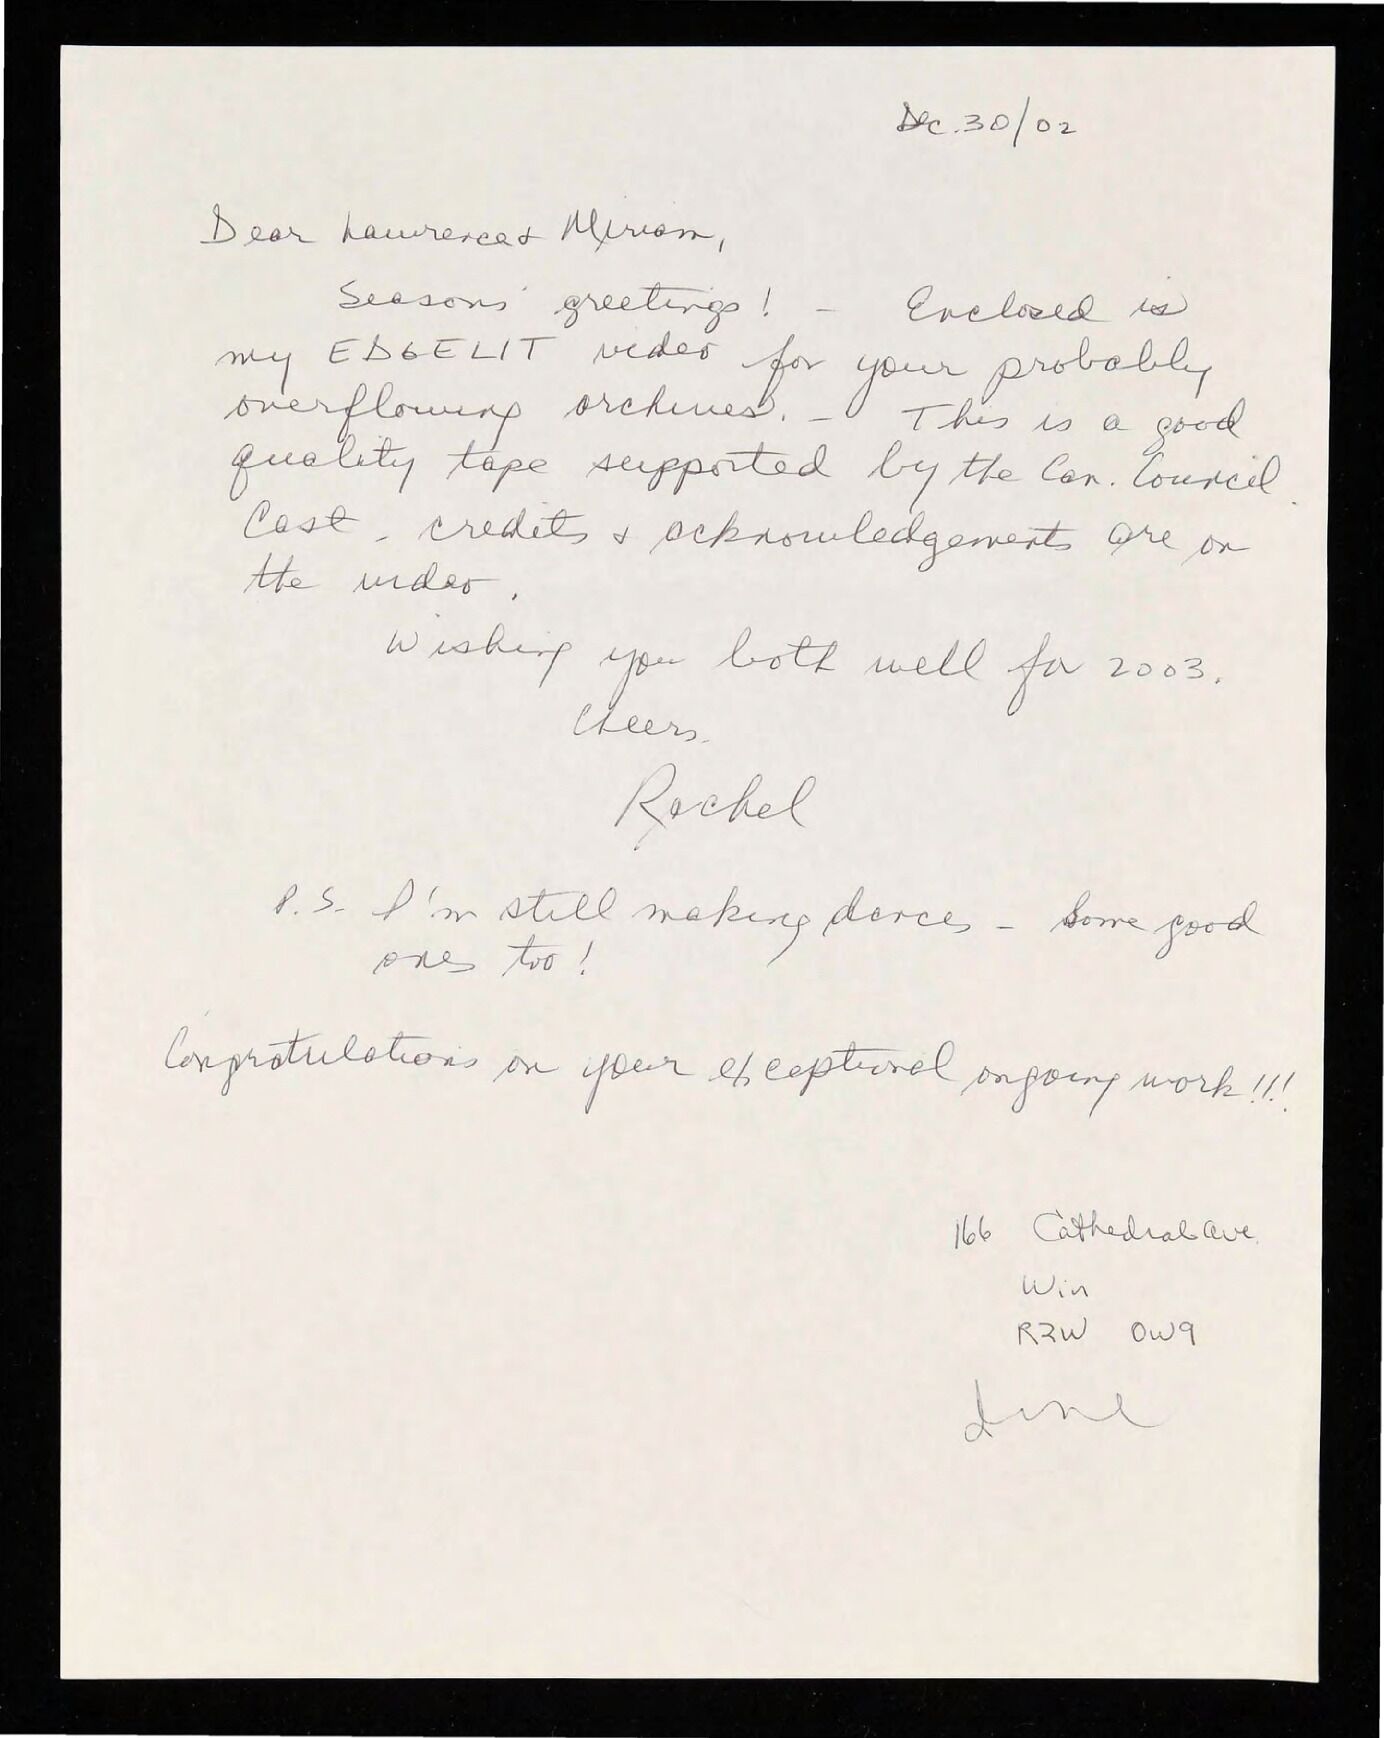 Dec. 30/02
Dear Lawrence & Miriam,
Seasons' greetings! - Enclosed is
my EDGELIT video for your probably
overflowing archives. - This is a good
quality tape supported by the Can. Council.
Cast, credits & acknowledgements are on
the video.
Wishing you both well for 2003.
Cheers,
Rachel
P.S. I'm still making dances - some good
ones too!
Congratulations on your exceptional ongoing work!!!
166 Cathedral Ave.
Win
R2W 0W9